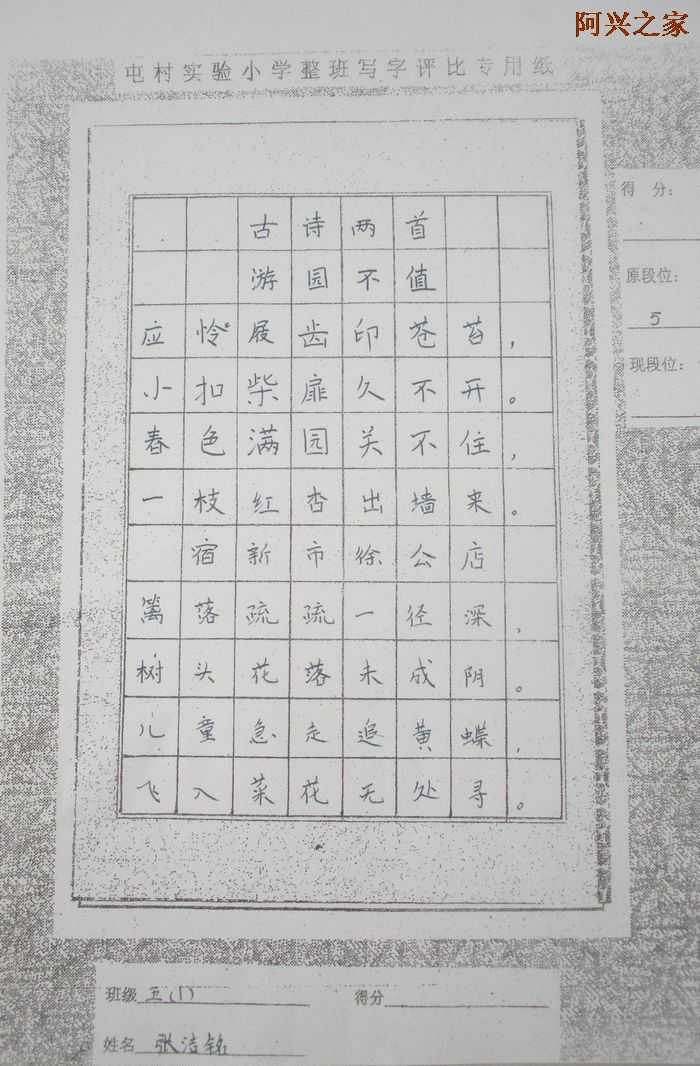 阿兴之家
屯村实验小学整班写字评比专用纸
得 分:
原段位:
5
现段位:
古诗两首
游园不值
应怜屐齿印苍苔,
小扣柴扉久不开。
春色满园关不住,
一枝红杏出墙来。
宿新市徐公店
篱落疏疏一径深,
树头花落未成阴。
儿童急走追黄蝶,
飞入菜花无处寻。
班级 五(1) 得分
姓名 张洁铭